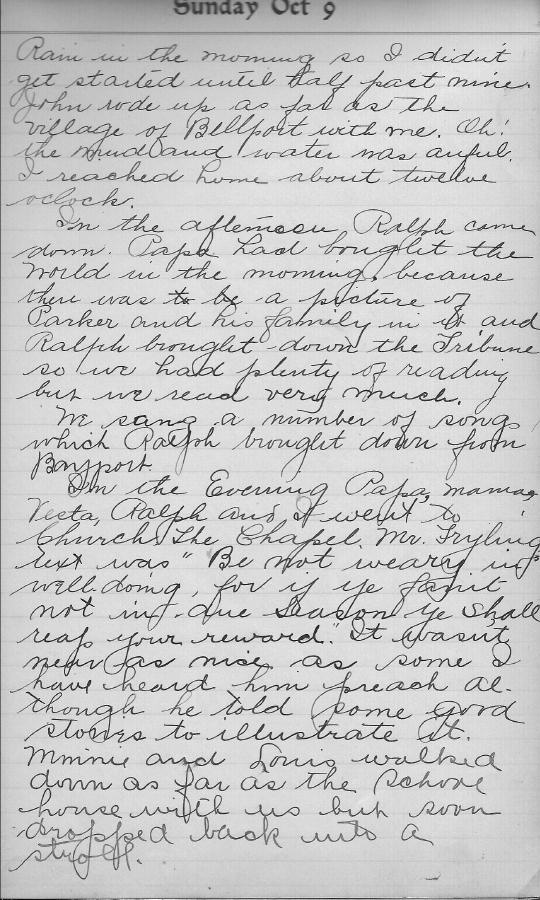 Sunday Oct 9
Rain in the morning so I didn't
get started until half past nine.
John rode up as far as the
village of Bellport with me. Oh!
the mud and water was awful.
I reached home about twelve
oclock.
In the afternoon Ralph came
down. Papa had bought the
World in the morning, because
there was to be a picture of
Parker and his family in it and
Ralph brought down the Tribune
so we had plenty of reading
but we read very much.
We sang a number of songs
which Ralph brought down from
Bayport.
In the Evening Papa, mama
Vesta, Ralph and I went to
Church. The Chapel. Mr. Fryling's
text was "Be not weary in
well-doing, for if ye faint
not in due Season ye shall
reap your reward." It wasn't
near as nice as some I
have heard him preach al-
though he told some good
stories to illustrate it.
Minnie and Louis walked
down as far as the school
house with us but soon
dropped back into a
stroll.